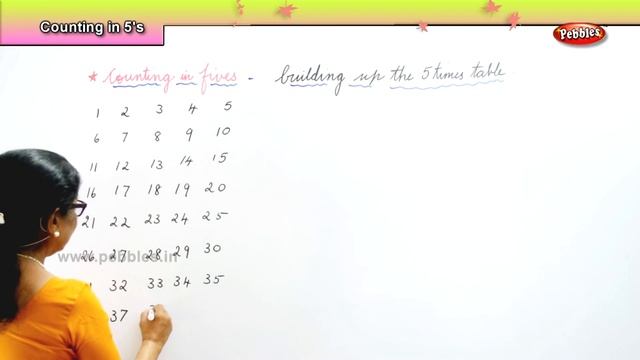 Counting in 5's
Pebbles
* Counting in fives - building up the 5 times table
1 2 3 4 5
6 7 8 9 10
11 12 13 14 15
16 17 18 19 20
21 22 23 24 25
26 27 28 29 30
www.pebbles.in
32 33 34 35
37